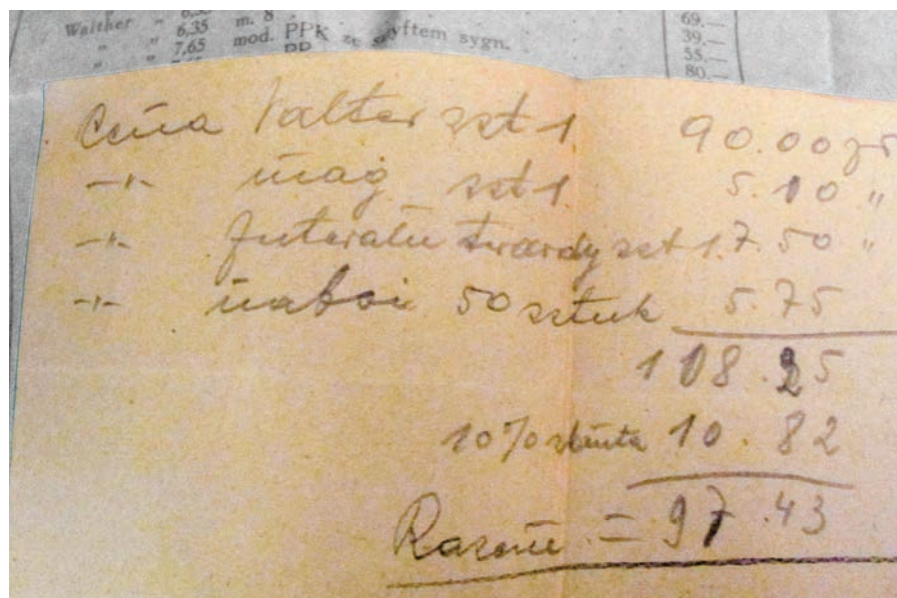 Walther „ 6,35 m. 8 69.—
„ „ 7,65 mod. PPK ze szyftem sygn. 39.—
55.—
80.—
Cena Valter szt 1 90.00 zł
-„- mag szt 1 5.10 „
-„- futerału twardy szt 1. 7.50 „
-„- naboi 50 sztuk 5.75
108.25
10% rabata 10.82
Razem = 97.43